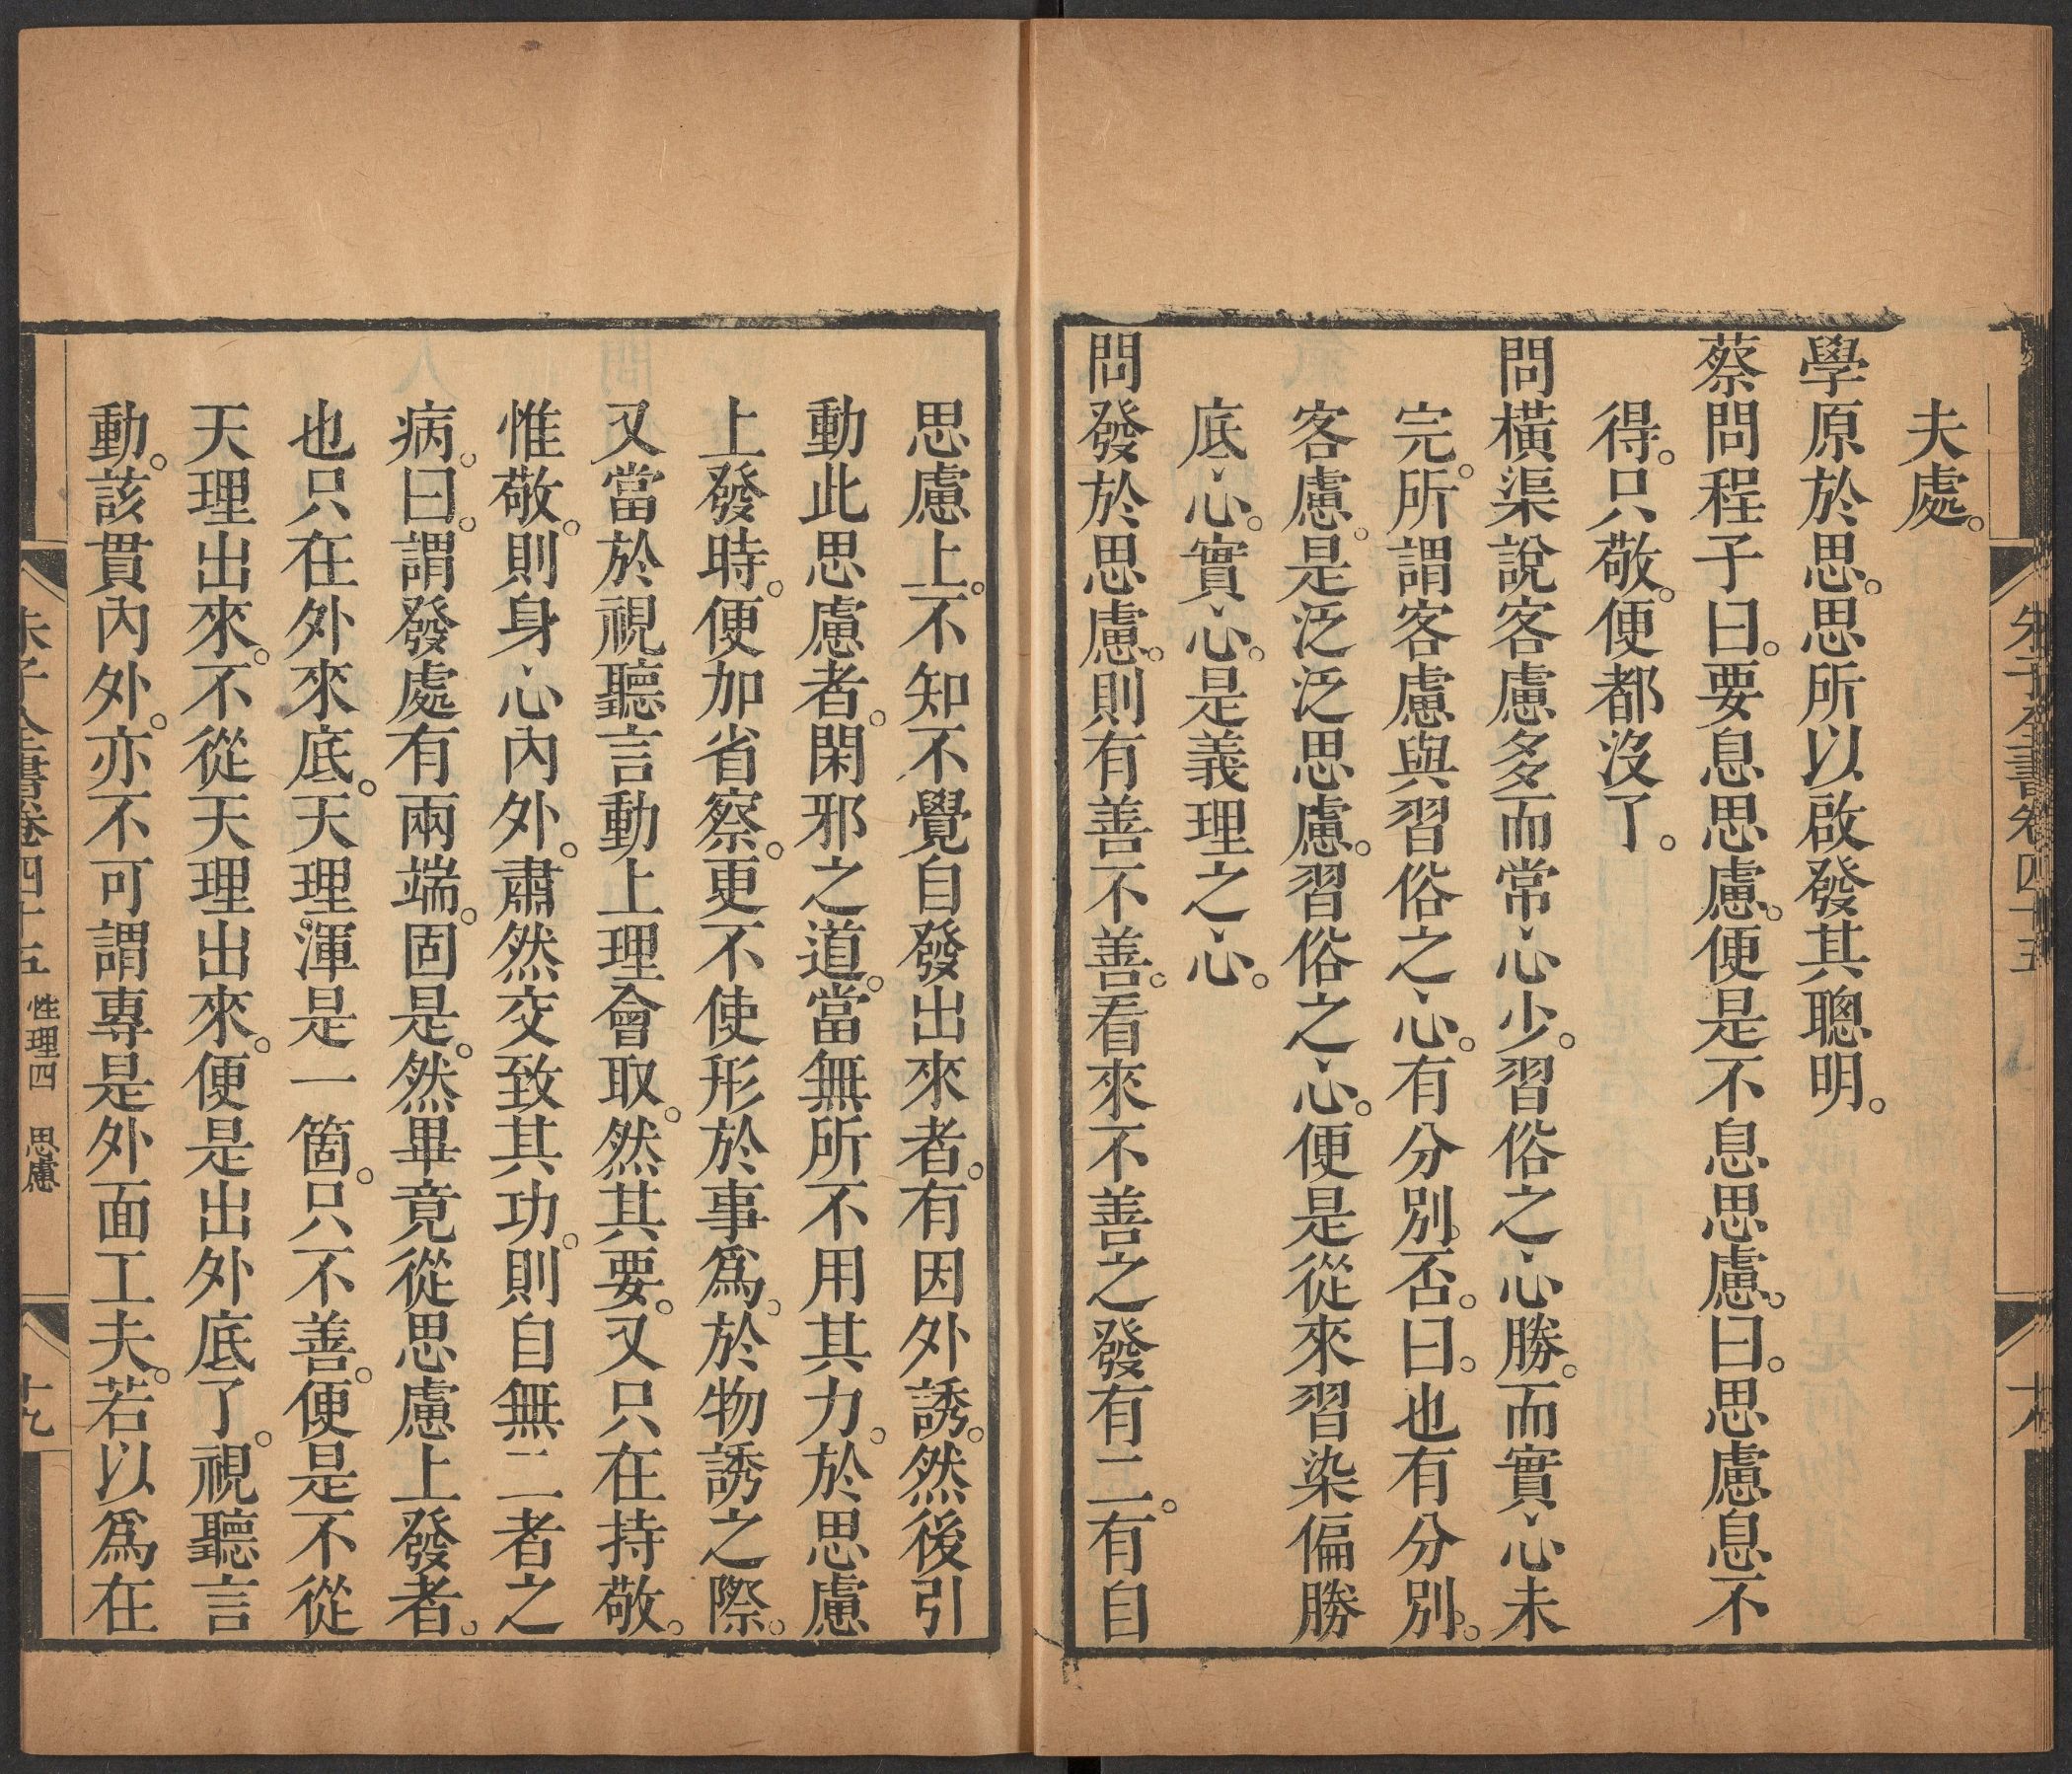 朱子全書卷四十五
夫處。
學原於思。思所以啟發其聰明。
蔡問程子曰。要息思慮。便是不息思慮。曰。思慮息不
得。只敬。便都沒了。
問橫渠說客慮多而常心少。習俗之心勝。而實心未
完。所謂客慮與習俗之心。有分別否。曰。也有分別。
客慮。是泛泛思慮。習俗之心。便是從來習染偏勝
底心。實心。是義理之心。
問發於思慮。則有善不善。看來不善之發有二。有自
思慮上。不知不覺自發出來者。有因外誘。然後引
動此思慮者。閑邪之道。當無所不用其力。於思慮
上發時。便加省察。更不使形於事爲。於物誘之際。
又當於視聽言動上理會取。然其要。又只在持敬。
惟敬。則身心內外。肅然交致其功。則自無二者之
病。曰。謂發處有兩端。固是。然畢竟從思慮上發者。
也只在外來底。天理。渾是一箇。只不善。便是不從
天理出來。不從天理出來。便是出外底了。視聽言
動。該貫內外。亦不可謂專是外面工夫。若以爲在
朱子全書卷四十五 性理四 思慮 十九